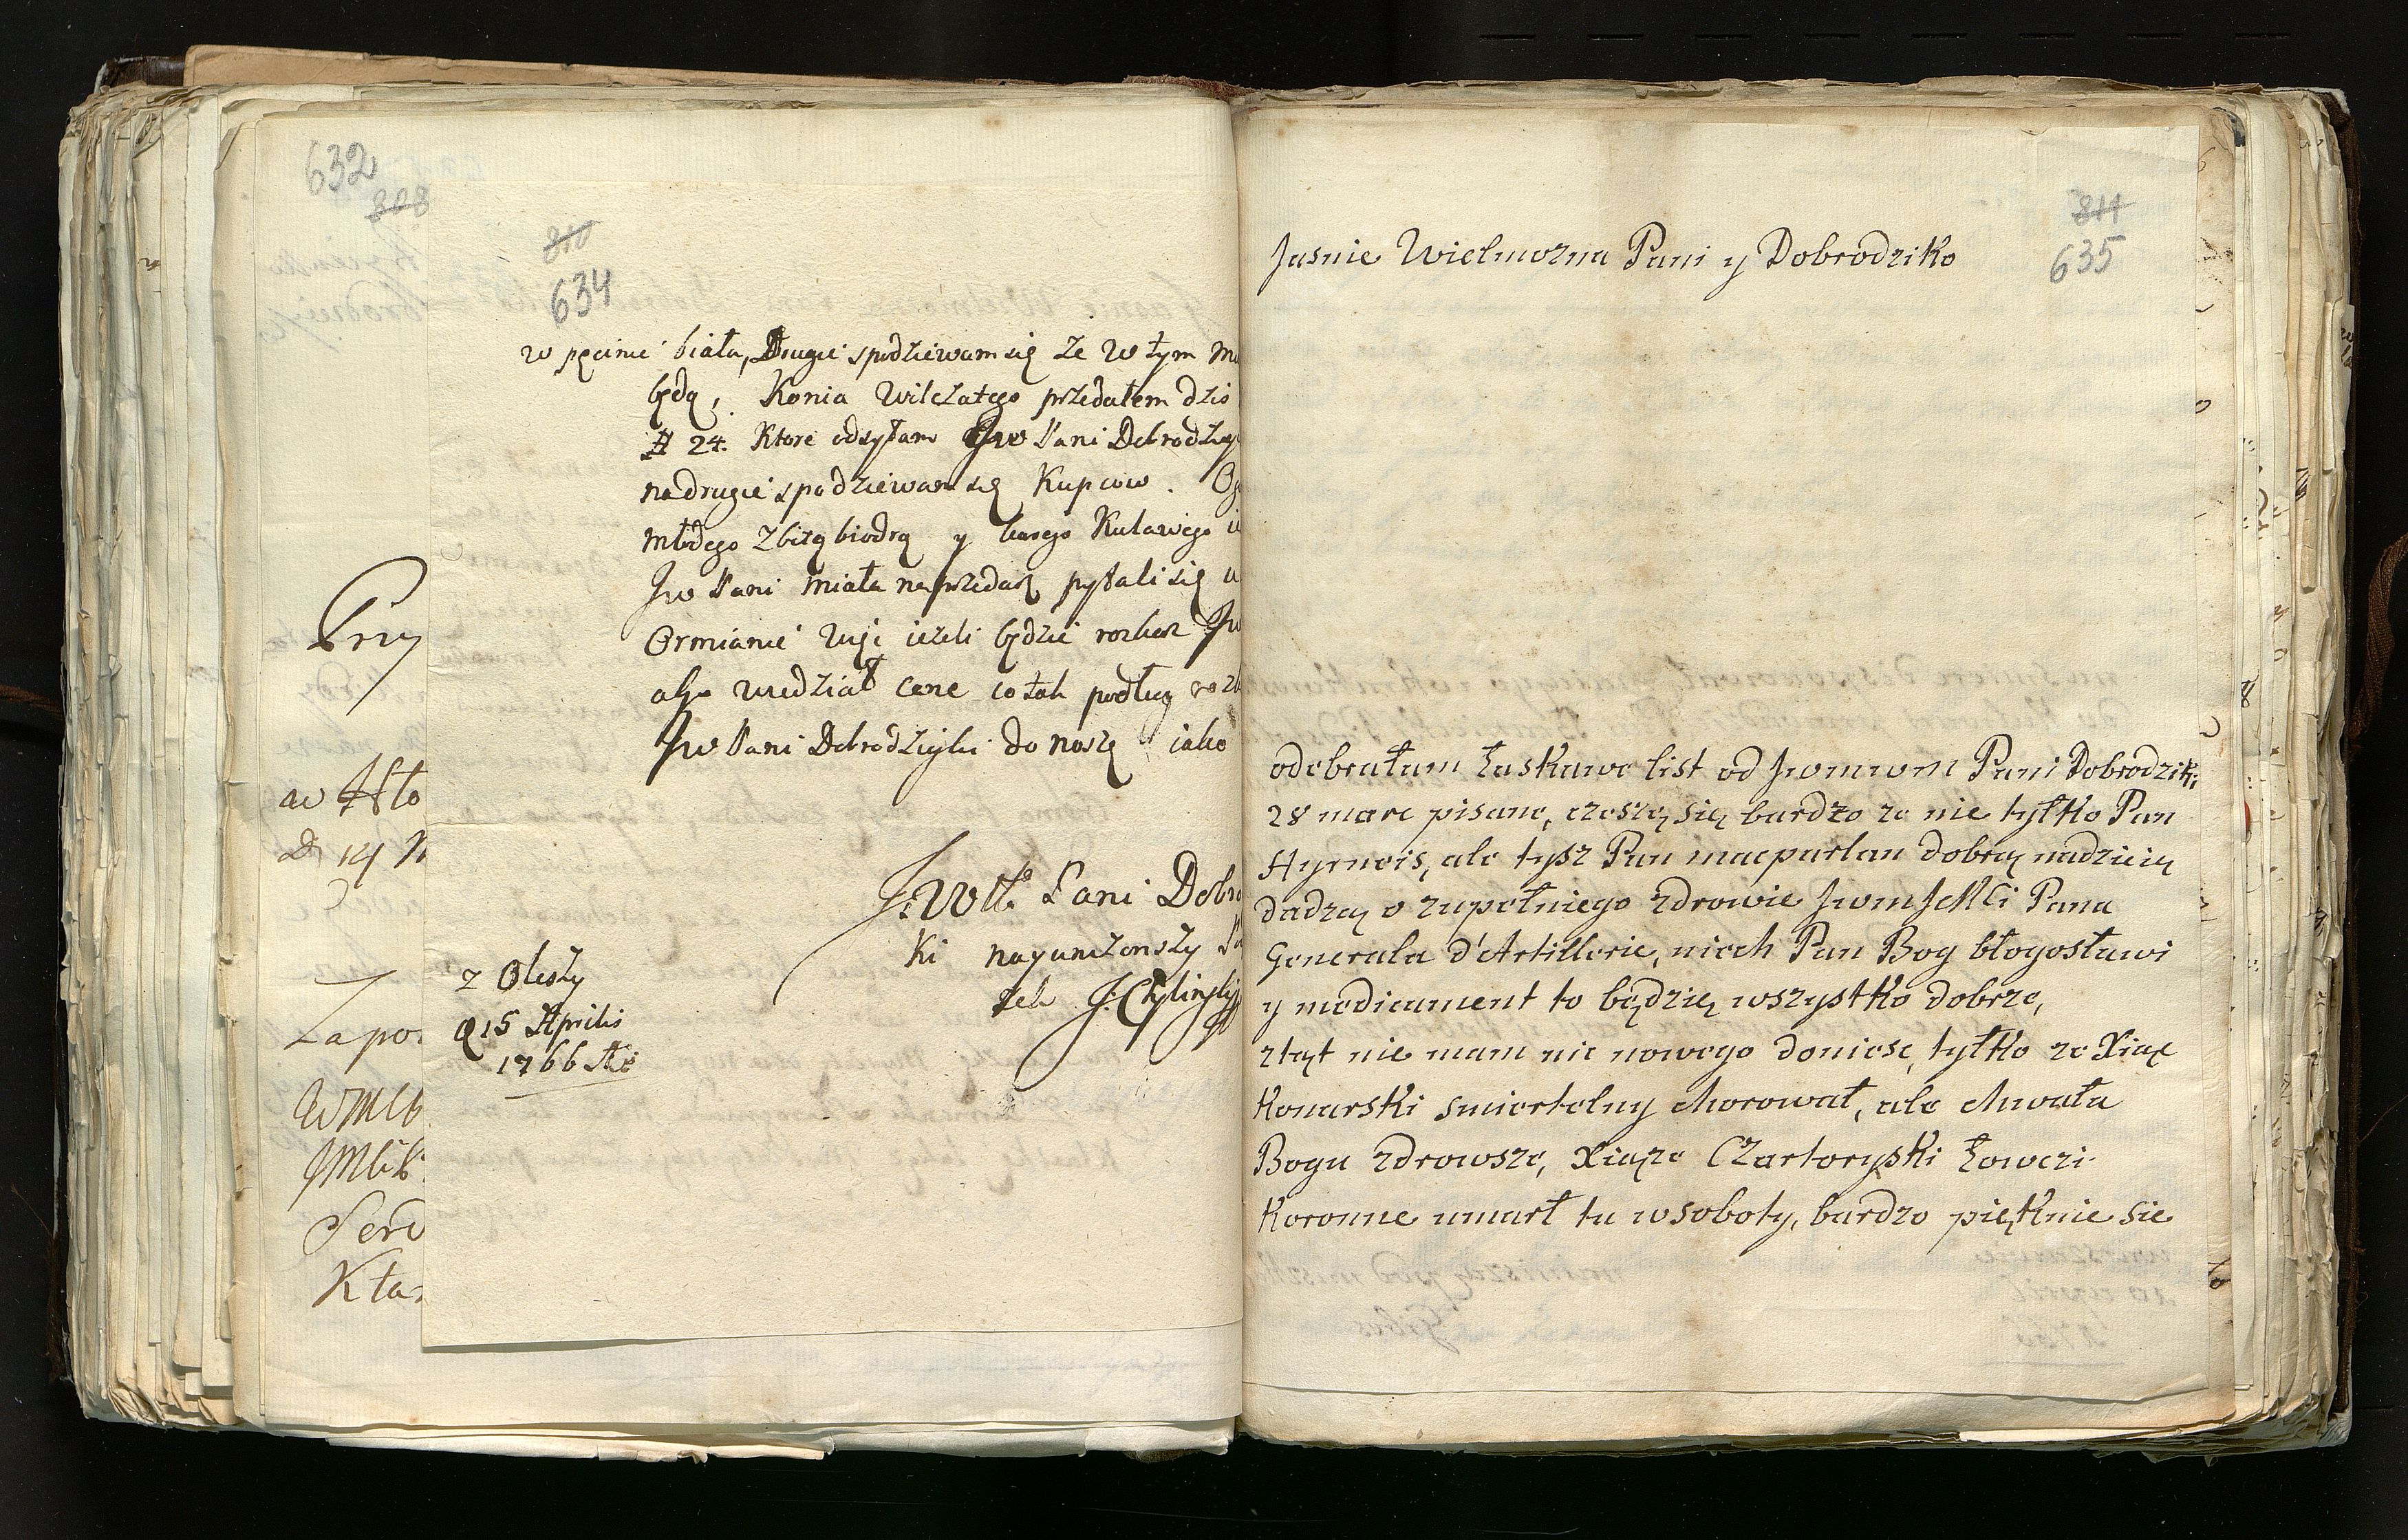 632
808
Przy
Zapo
Serd
810
634
w pęcinie biała, Drugie spodziewam się ze w tym
będą, Konia Wilczatego przedałem dziś
# 24. Ktore odsyłam Jw Pani Dobrodziey
na drugie spodziewam się Kupcow.
młodego z bitą biodrą y karego Kulawego
Jw Pani miała na przedasz pytali się
Ormianie wiję ieżeli będzie rozkaz Jw
abym wiedział cene co tak podług
Jw Pani Dobrodzieyki donoszę iako
JWW Pani Dobro
ki nayunizenszy
z Oleszy
D 15 Aprilis
1766
811
635
Jasnie Wielmozna Pani y Dobrodziko
odebrałam Łaskawe list od Jwmwm Pani Dobrodziki
28 marc pisane, czeszę się bardzo ze nie tyłko Pan
Hyrneis, ale tysz Pan macparlan dobrą nadzieią
dadzą o zupełniego zdrowie JwmJchMci Pana
Generala d'Artillerie, niech Pan Bog błogosławi
y medicament to będzię wszystko dobrze,
ztąt nie mam nic nowego doniesc, tyłko ze Xiąc
Konarski smiertelny chorował, ale chwała
Bogu zdrowsze, Xiąze Czartoryski Łowczi
Koronne umarł tu w soboty, bardzo pięknie sie